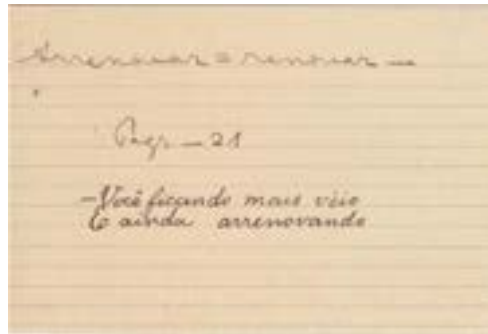 Arrenovar = renovar —
Pagr — 21
— Você ficando mais véio
E ainda arrenovando